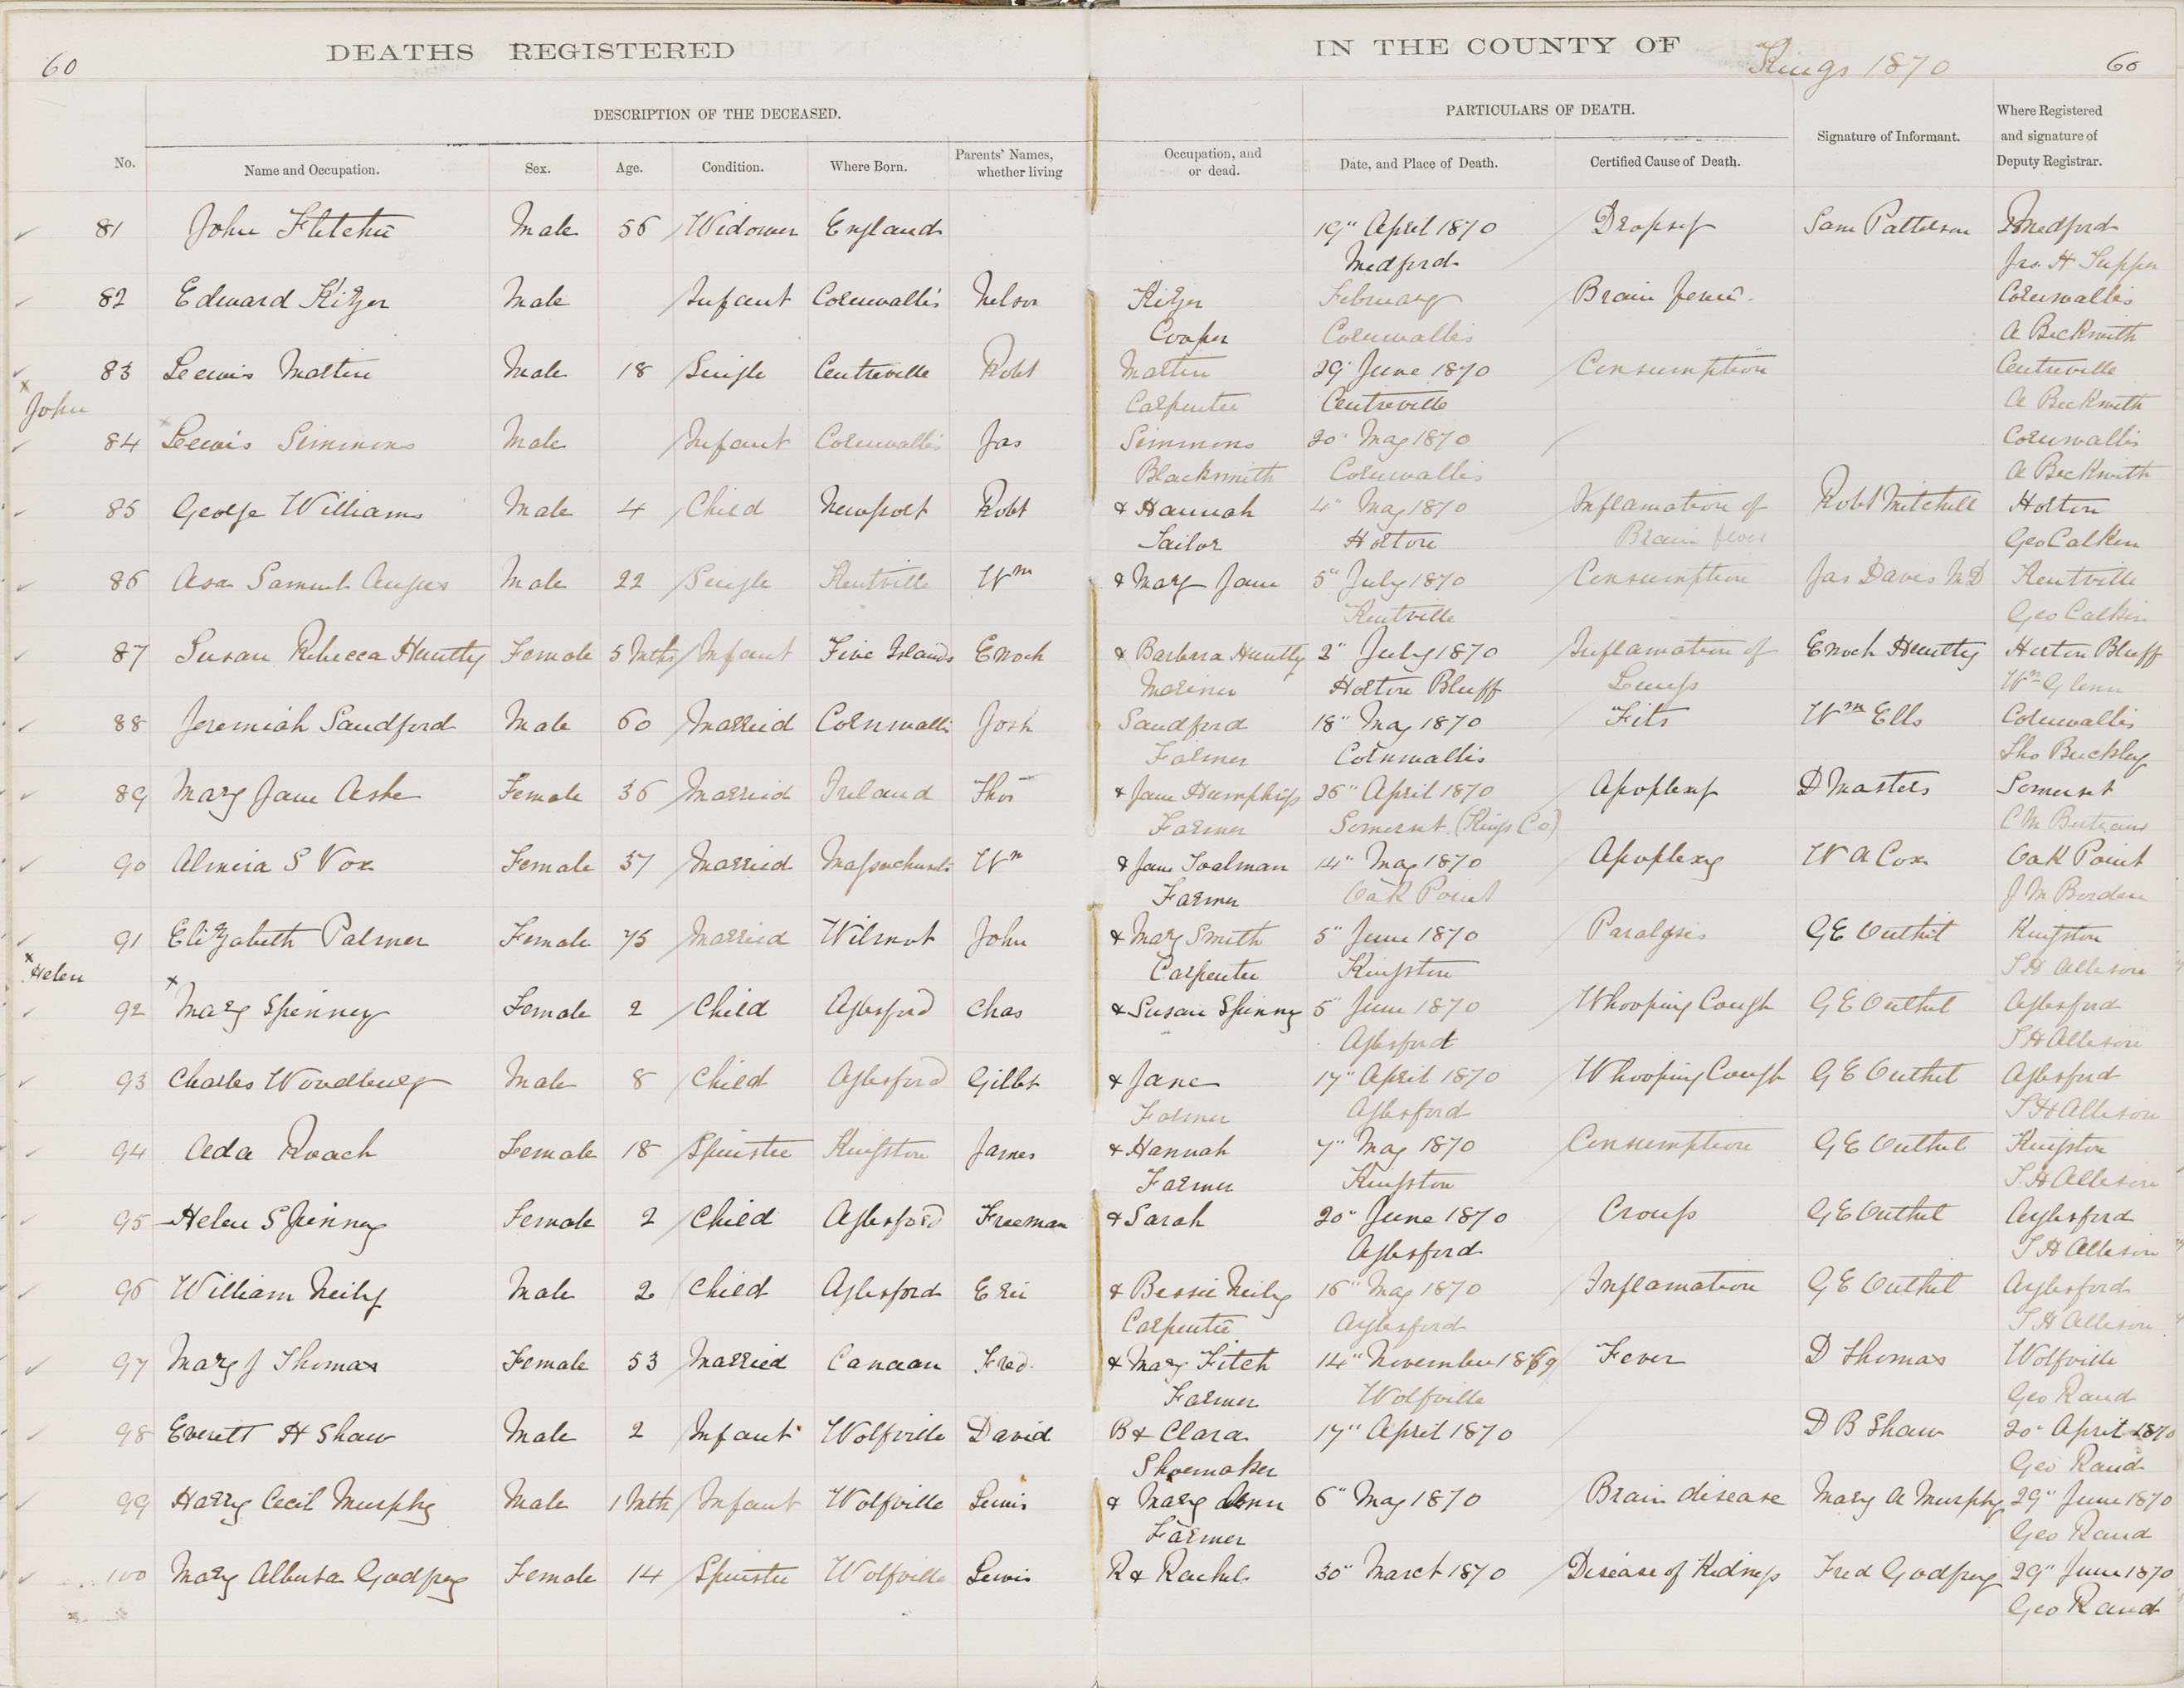 60 DEATHS REGISTERED IN THE COUNTY OF Kings 1870 60
DESCRIPTION OF THE DECEASED. PARTICULARS OF DEATH. Signature of Informant. Where Registered and signature of Deputy Registrar.
No. Name and Occupation. Sex. Age. Condition. Where Born. Parents' Names, whether living Occupation, and or dead. Date, and Place of Death. Certified Cause of Death.
81 John Fletcher Male 56 Widower England 19" April 1870 Dropsy Sam Patterson Medford
Medford Jas. H Tupper
82 Edward Kizer Male Infant Cornwallis Nelson Kizer February Brain fever Cornwallis
Cooper Cornwallis A Beckwith
83 Leewis Martin Male 18 Single Centreville Robt Martin 29" June 1870 Consumption Centreville
x John Carpenter Centreville A Beckwith
84 x Leewis Simmons Male Infant Cornwallis Jas Simmons 20" May 1870 Cornwallis
Blacksmith Cornwallis A Beckwith
85 George Williams Male 4 Child Newport Robt & Hannah 4" May 1870 Inflamation of Robt Mitchell Horton
Tailor Horton Brain fever Geo Calkin
86 Asa Samuel Angus Male 22 Single Kentville Wm & Mary Jane 5" July 1870 Consumption Jas Davis MD Kentville
Kentville Geo Calkin
87 Susan Rebecca Huntly Female 5 Mths Infant Five Islands Enoch & Barbara Huntly 2" July 1870 Inflamation of Enoch Huntly Horton Bluff
Mariner Horton Bluff Lungs Wm Glenn
88 Jeremiah Sandford Male 60 Married Cornwallis Josh Sandford 18" May 1870 Fits Wm Ells Cornwallis
Farmer Cornwallis Tho Buckley
89 Mary Jane Ashe Female 36 Married Ireland Thos & Jane Humphrys 26" April 1870 Apoplexy D Masters Somerset
Farmer Somerset (Kings Co) C M
90 Almira S Vox Female 37 Married Massachusets Wm & Jane Toalman 14" May 1870 Apoplexy W A Cox Oak Point
Farmer Oak Point J M Borden
91 Elizabeth Palmer Female 75 Married Wilmot John & Mary Smith 5" June 1870 Paralysis G E Outhit Kingston
x Helen Carpenter Kingston S H Allison
92 x Mary Spinney Female 2 Child Aylesford Chas & Susan Spinny 5" June 1870 Whooping Cough G E Outhit Aylesford
Aylesford S H Allison
93 Charles Woodbury Male 8 Child Aylesford Gilbt & Jane 17" April 1870 Whooping Cough G E Outhit Aylesford
Farmer Aylesford S H Allison
94 Ada Roach Female 18 Spinster Kingston James & Hannah 7" May 1870 Consumption G E Outhit Kingston
Farmer Kingston S H Allison
95 Helen Spinney Female 2 Child Aylesford Freeman & Sarah 20" June 1870 Croup G E Outhit Aylesford
Aylesford S H Allison
96 William Neily Male 2 Child Aylesford Eric & Bessie Neily 16" May 1870 Inflamation G E Outhit Aylesford
Carpenter Aylesford S H Allison
97 Mary J Thomas Female 53 Married Canaan Fred. & Mary Fitch 14" November 1869 Fever D Thomas Wolfville
Farmer Wolfville Geo Rand
98 Everett H Shaw Male 2 Infant Wolfville David B & Clara 17" April 1870 D B Shaw 20" April 1870
Shoemaker Geo Rand
99 Harry Cecil Murphy Male 1 Mth Infant Wolfville Lewis & Mary Ann 6" May 1870 Brain disease Mary A Murphy 29" June 1870
Farmer Geo Rand
100 Mary Alberta Godfrey Female 14 Spinster Wolfville Lewis R & Rachel 30" March 1870 Disease of Kidneys Fred Godfrey 29" June 1870
Geo Rand